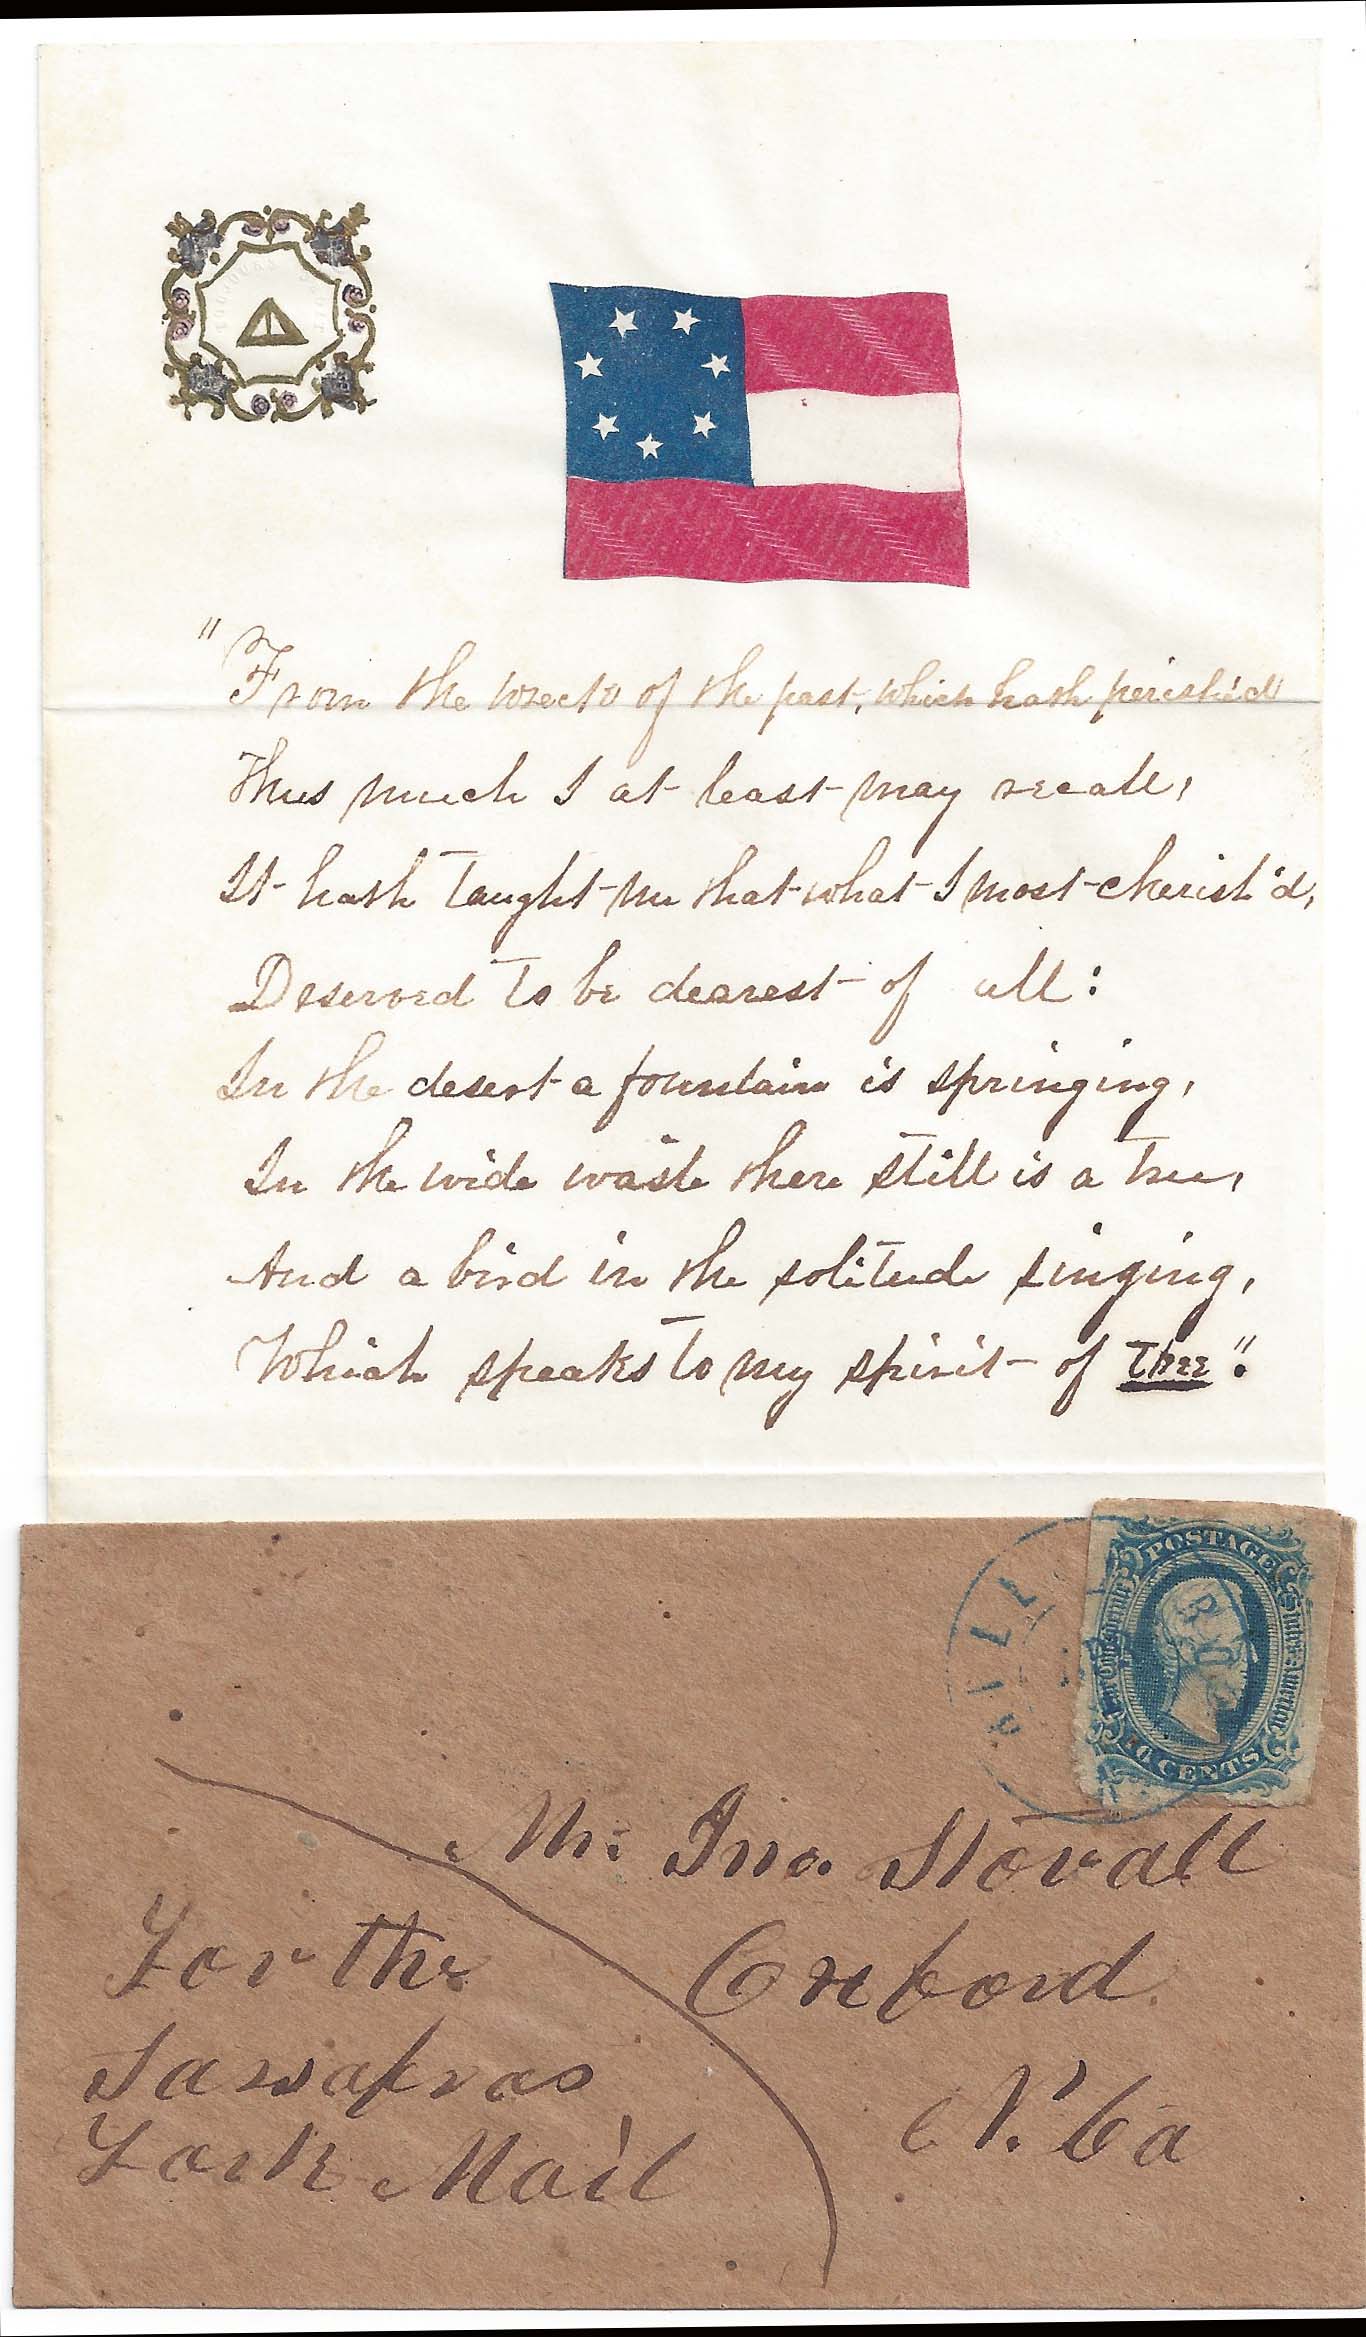 "From the wreck of the past, which hath perish'd
Thus much I at least may recall,
It hath taught me that what I most cherish'd,
Deserved to be dearest of all:
In the desert a fountain is springing,
In the wide waste there still is a tree,
And a bird in the solitude singing,
Which speaks to my spirit of thee".
POSTAGE
The Confederate States of America
10 CENTS
Mr. Jno. Stovall
Oxford
N. Ca
For the
Sassafras
Fork Mail